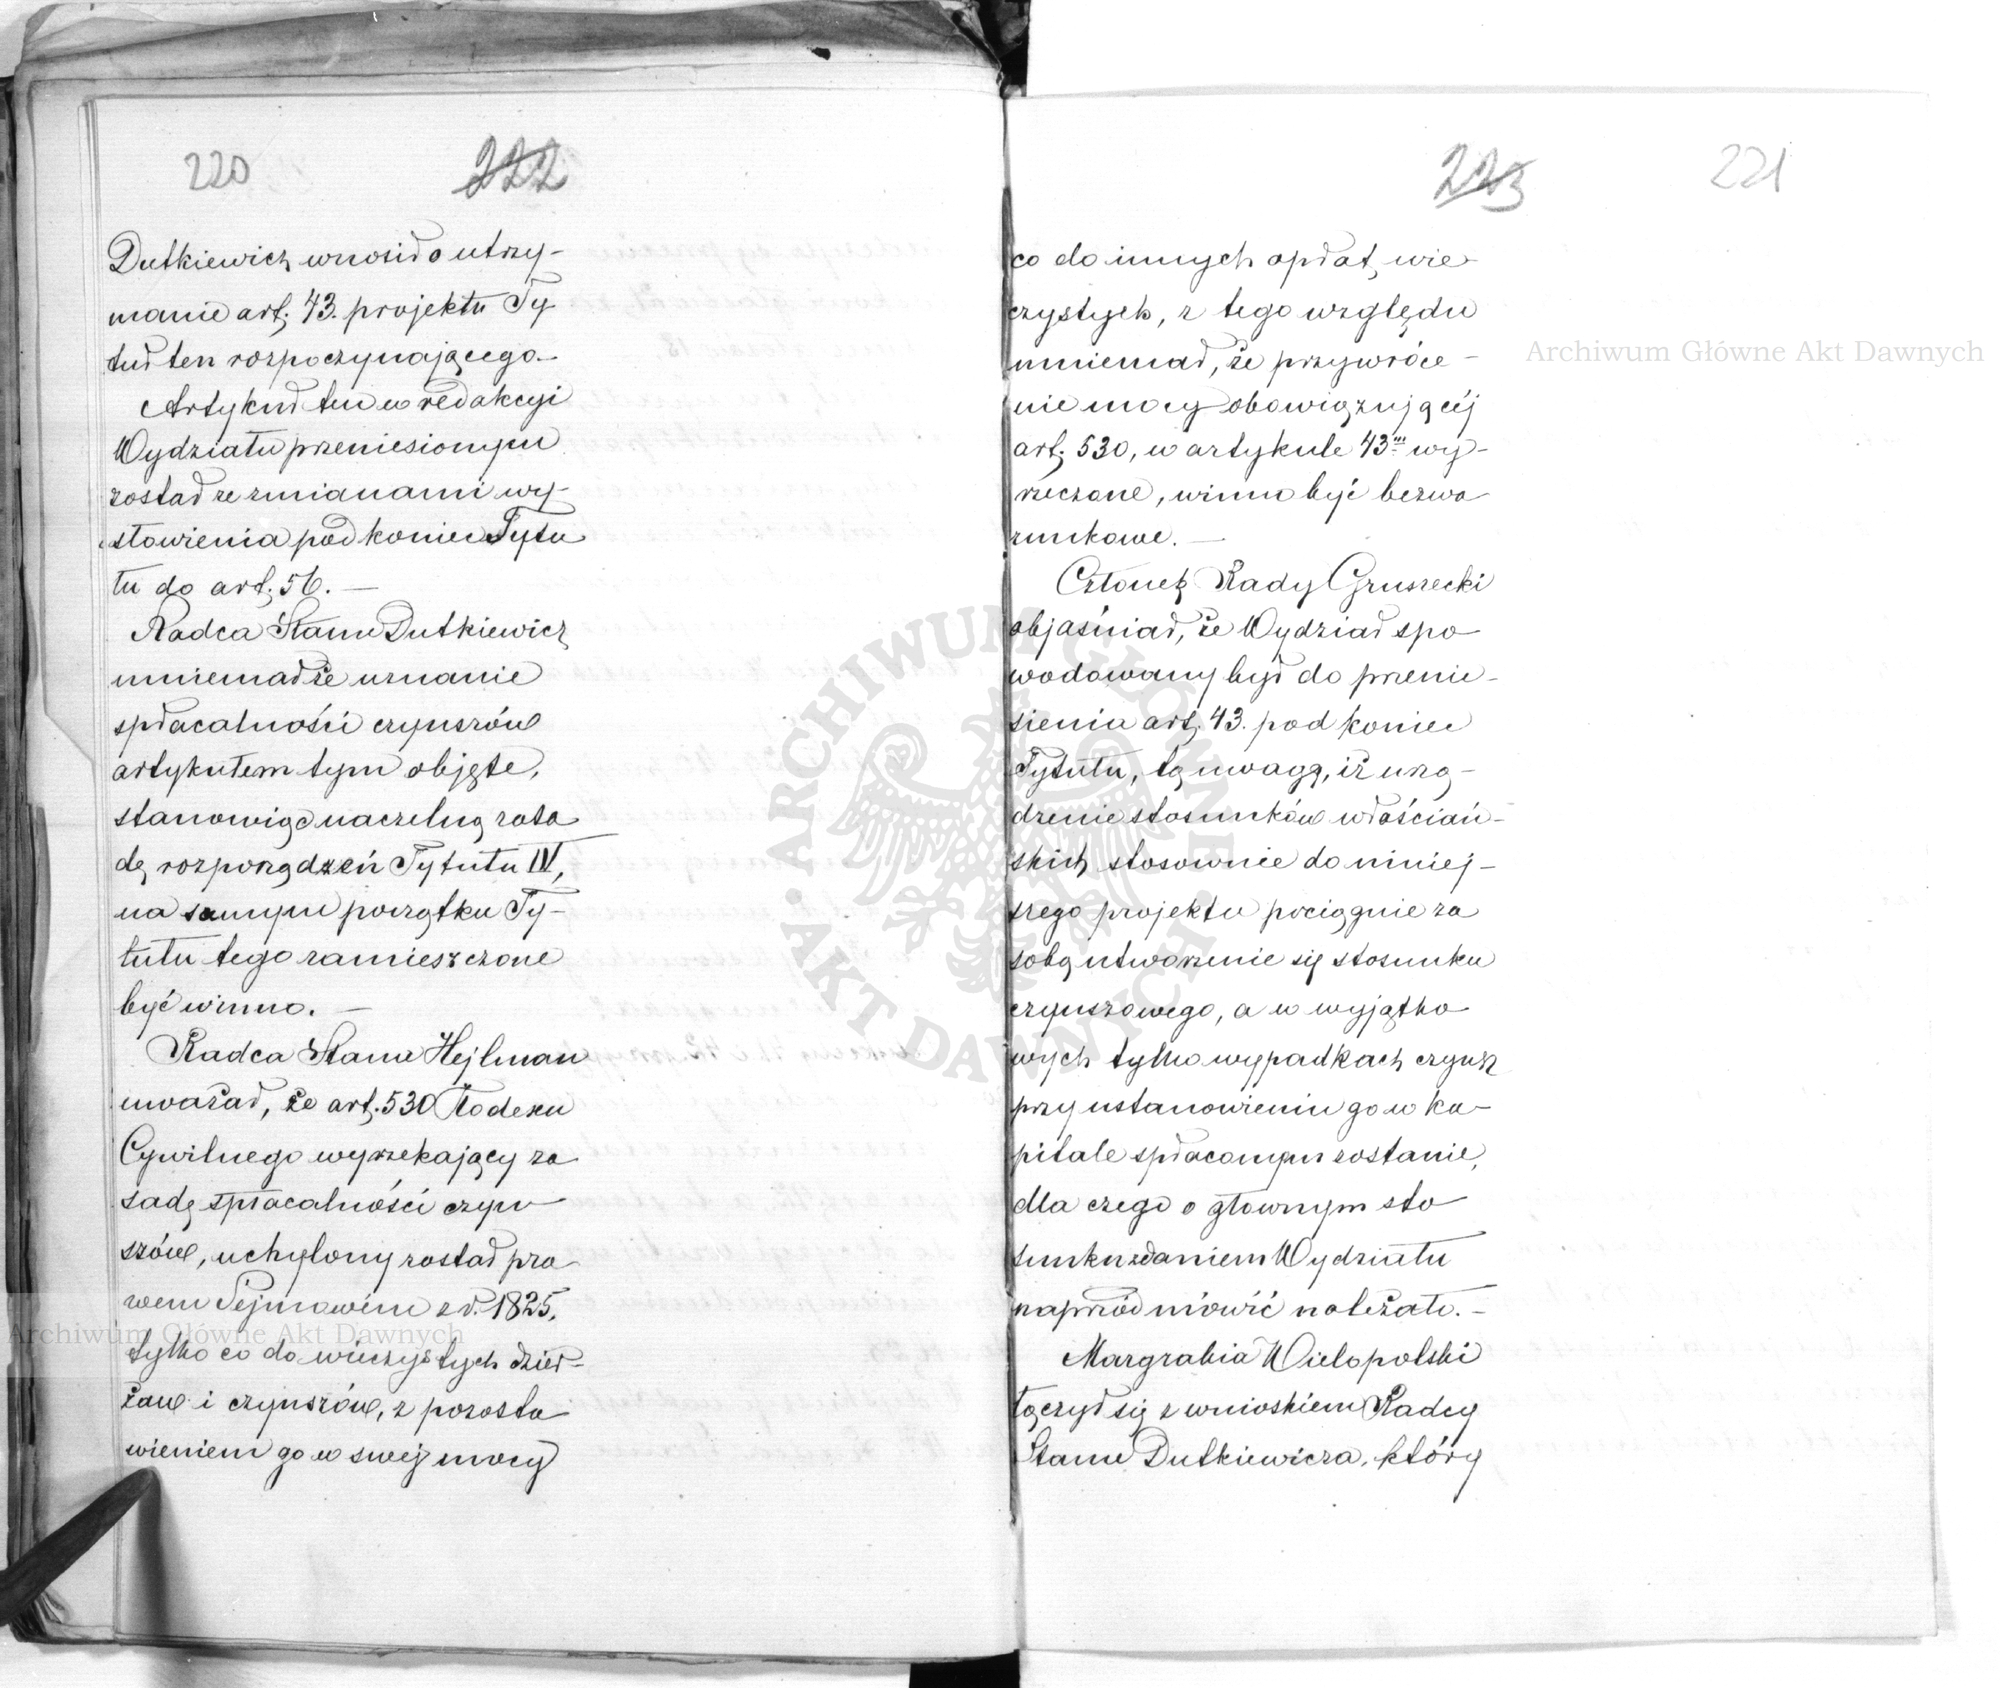 220
222
Dutkiewicz wnosił o utrzy-
manie art; 43. projektu Ty
tuł ten rozpoczynającego.-
Artykuł ten w redakcyi
Wydziału przeniesionym
został ze zmianami wy-
słowienia pod koniec Tytu
łu do art; 56. —
Radca Stanu Dutkiewicz
mniemał że uznanie
spłacalności czynszów
artykułem tym objęte,
stanowiąc naczelną zasa
dę rozporządzeń Tytułu IV,
na samym początku Ty-
tułu tego zamieszczone
być winno. —
Radca Stanu Hejlman
uważał, że art; 530 Kodexu
Cywilnego wyrzekający za
sadę spłacalności czyn
szów, uchylony został pra
wem Sejmowém z r. 1825,
tylko co do wieczystych dzier-
żaw i czynszów, z pozosta
wieniem go w swej mocy
223
221
co do innych opłat wie-
czystych, z tego względu
mniemał, że przywróce-
nie mocy obowiązującéj
art; 530, w artykule 43m wy-
rzeczone, winno być bezwa
runkowe. —
Członek Rady Gruszecki
objaśniał, że Wydział spo
wodowany był do przenie-
sienia art; 43. pod koniec
Tytułu, tą uwagą, iż urzą-
dzenie stosunków włościań-
skich stosownie do niniej-
szego projektu pociągnie za
sobą utworzenie się stosunku
czynszowego, a w wyjątko
wych tylko wypadkach czynsz
przy ustanowieniu go w ka-
pitale spłaconym zostanie,
dla czego o głównym sto
sunku zdaniem Wydziału
naprzód mówić należało. -
Margrabia Wielopolski
łączył się z wnioskiem Radcy
Stanu Dutkiewicza, który
Archiwum Główne Akt Dawnych
Archiwum Główne Akt Dawnych
ARCHIWUM GŁÓWNE • AKT DAWNYCH •